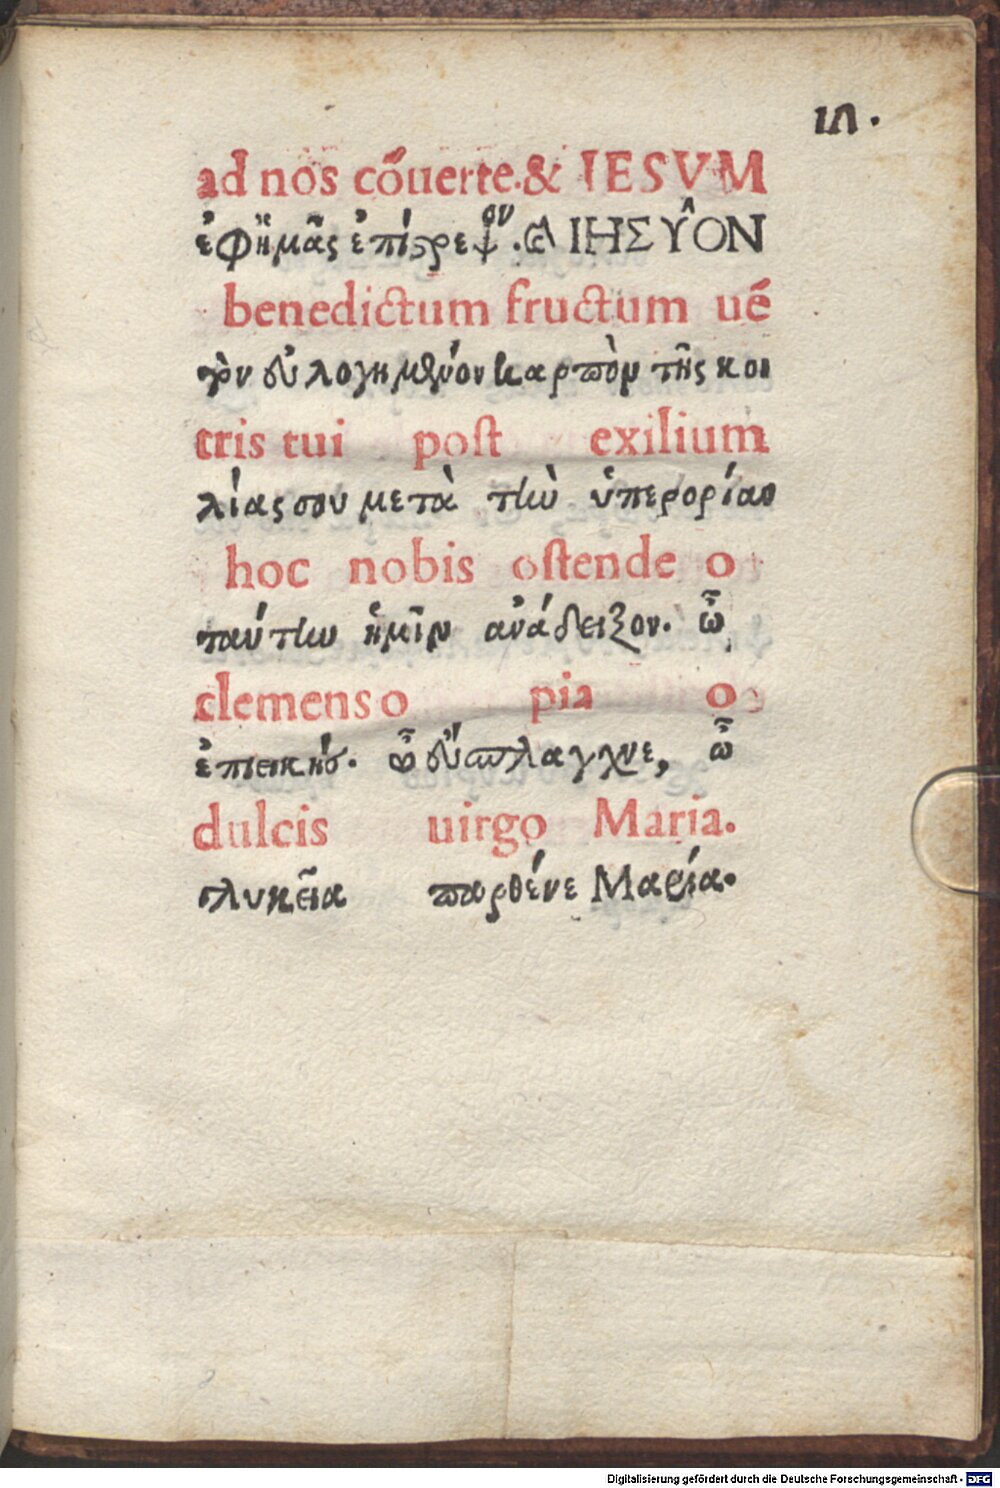 ad nos cõuerte.& IESVM
ἐφ ἡμᾶς ἐπίστρεψον. ΙΗΣΥ͂ΟΝ
benedictum fructum uẽ
τὸν εὐλογημένον καρπὸν τῆς κοι
tris tui post exilium
λίας σου μετὰ τὴν ὑπερορίαν
hoc nobis ostende o
ταύτην ἡμῖν ἀνάδειξον. ὦ
clemens o pia o
ἐπιεικής. ὦ εὔσπλαγχνε, ὦ
dulcis uirgo Maria.
γλυκεῖα παρθένε Μαρία.
Digitalisierung gefördert durch die Deutsche Forschungsgemeinschaft - DFG